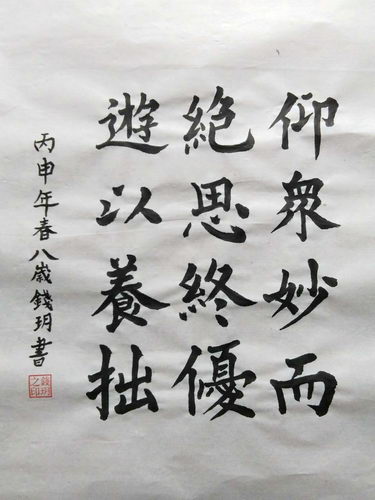 仰衆妙而
絶思終優
遊以養拙
丙申年春八歲錢玥書
錢玥之印